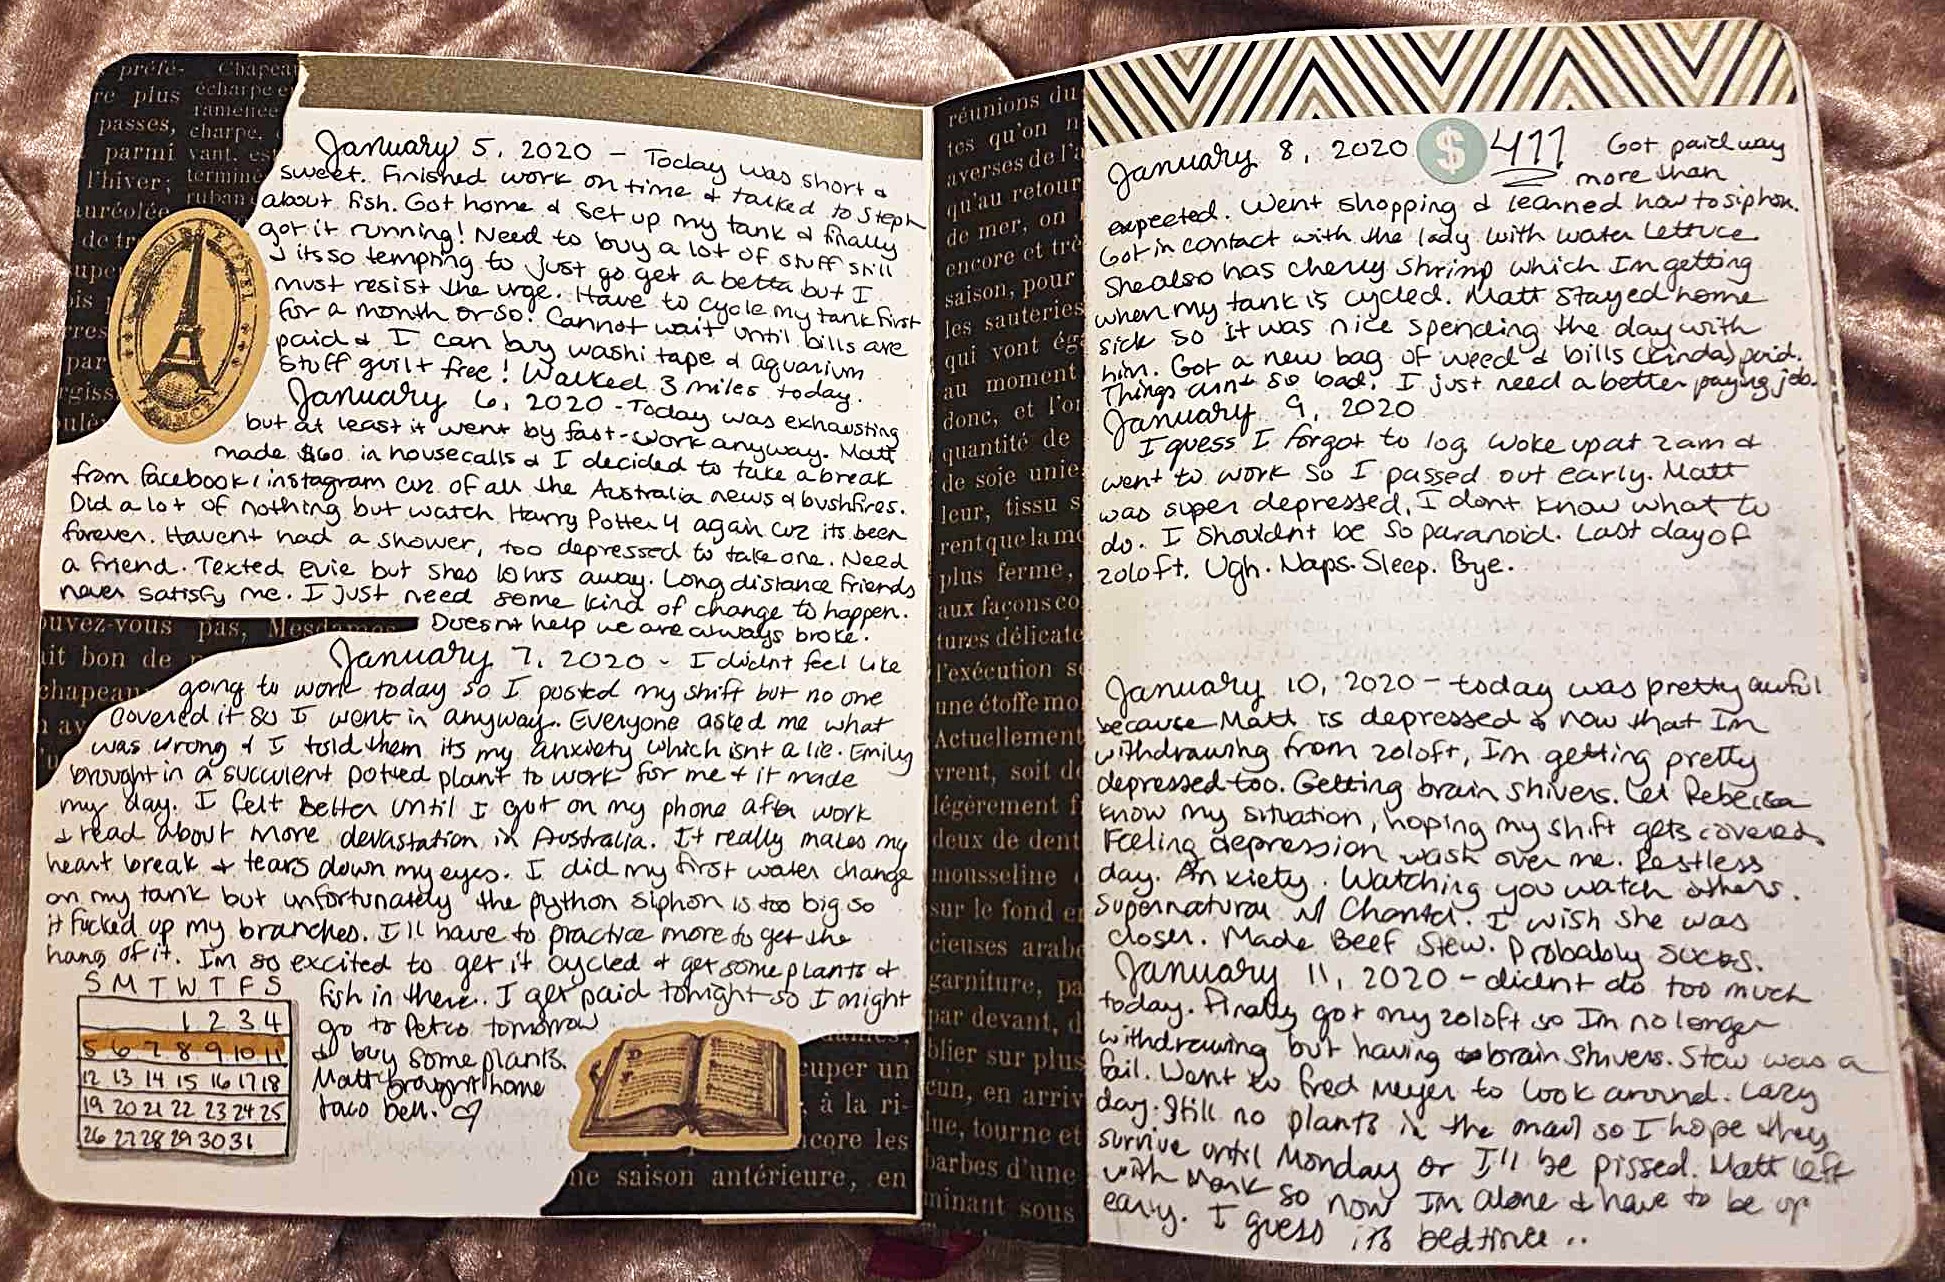 préfé-
re plus
passes,
parmi
l'hiver;
auréolée
de tr
Chapeau
écharpe et
ramenée
charpe.
vant. es
termine
ruban
TOUR EIFFEL
FRANCE
January 5, 2020 - Today was short &
sweet. Finished work on time & talked to Steph
about fish. Got home & set up my tank & finally
got it running! Need to buy a lot of stuff still
& its so tempting to just go get a betta but I
must resist the urge. Have to cycle my tank first
for a month or so. Cannot wait until bills are
paid & I can buy washi tape & aquarium
stuff guilt free! Walked 3 miles today.
January 6, 2020 - Today was exhausting
but at least it went by fast-work anyway. Matt
made $60 in housecalls & I decided to take a break
from facebook/instagram cuz of all the Australia news & bushfires.
Did a lot of nothing but watch Harry Potter 4 again cuz its been
forever. Havent had a shower, too depressed to take one. Need
a friend. Texted Evie but shes 10 hrs away. Long distance friends
never satisfy me. I just need some kind of change to happen.
Doesnt help we are always broke.
ouvez-vous pas, Mesdames
ait bon de
chapeau
January 7, 2020 - I didnt feel like
going to work today so I posted my shift but no one
covered it so I went in anyway. Everyone asked me what
was wrong & I told them its my anxiety which isnt a lie. Emily
brought in a succulent potted plant to work for me & it made
my day. I felt better until I got on my phone after work
& read about more devastation in Australia. It really makes my
heart break & tears down my eyes. I did my first water change
on my tank but unfortunately the python siphon is too big so
it fucked up my branches. I'll have to practice more to get the
hang of it. Im so excited to get it cycled & get some plants &
fish in there. I get paid tonight so I might
go to Petco tomorrow
& buy some plants.
Matt brought home
taco bell. ♡
S M T W T F S
1 2 3 4
5 6 7 8 9 10 11
12 13 14 15 16 17 18
19 20 21 22 23 24 25
26 27 28 29 30 31
cuper un
à la ri-
core les
ne saison antérieure, en
réunions du
tes qu'on n
averses de l'a
qu'au retour
de mer, on
encore et trè
saison, pour
les sauteries
qui vont ég
au moment
donc, et l'or
quantité de
de soie unie
leur, tissu s
rent que la mo
plus ferme,
aux façons co
tures délicate
l'exécution se
une étoffe mo
Actuellement
vrent, soit de
légèrement f
deux de dent
mousseline
sur le fond e
cieuses arabe
garniture, pa
par devant, d
blier sur plus
cun, en arriv
lue, tourne et
barbes d'une
minant sous
January 8, 2020 $ 477 Got paid way
more than
expected. Went shopping & learned how to siphon.
Got in contact with the lady with water lettuce.
She also has cherry shrimp which Im getting
when my tank is cycled. Matt stayed home
sick so it was nice spending the day with
him. Got a new bag of weed & bills (kinda) paid.
Things aint so bad. I just need a better paying job.
January 9, 2020
I guess I forgot to log. Woke up at 2am &
went to work so I passed out early. Matt
was super depressed, I dont know what to
do. I shouldnt be so paranoid. Last day of
zoloft. Ugh. Naps. Sleep. Bye.
January 10, 2020 - today was pretty awful
because Matt is depressed & now that Im
withdrawing from zoloft, Im getting pretty
depressed too. Getting brain shivers. Let Rebecca
know my situation, hoping my shift gets covered.
Feeling depression wash over me. Restless
day. Anxiety. Watching you watch others.
Supernatural w/ Chantel. I wish she was
closer. Made Beef Stew. Probably sucks.
January 11, 2020 - didnt do too much
today. Finally got my zoloft so Im no longer
withdrawing but having brain shivers. Stew was a
fail. Went to Fred Meyer to look around. Lazy
day. Still no plants in the mail so I hope they
survive until Monday or I'll be pissed. Matt left
with Mark so now Im alone & have to be up
early. I guess its bedtime ..